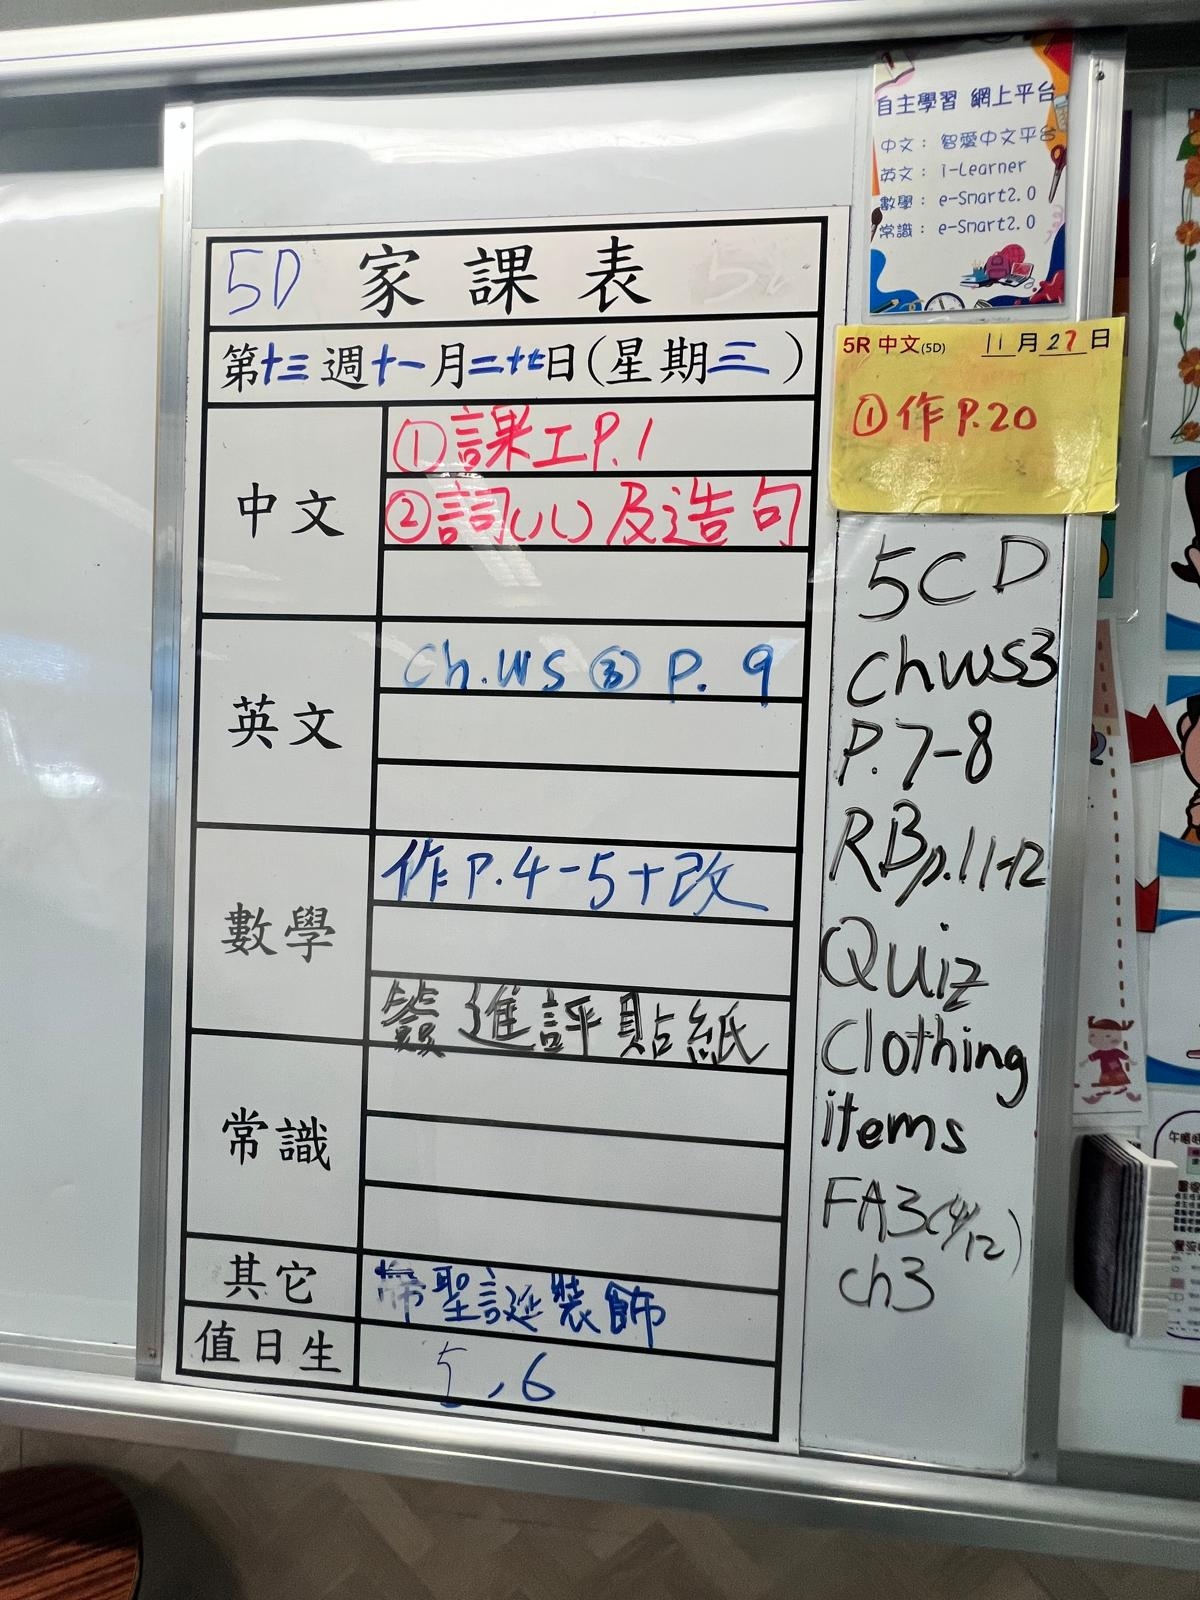 自主學習 網上平台
中文： 智愛中文平台
英文： i-Learner
數學： e-Smart2.0
常識： e-Smart2.0
5D 家課表
第十三週十一月二十七日(星期三)
中文
①課工P.1
②詞(八)及造句
英文
Ch.WS ③ P. 9
數學
作P.4-5+改
簽進評貼紙
常識
其它
帶聖誕裝飾
值日生
5,6
5R 中文(5D) 11月27日
①作P.20
5CD
chWS3
P.7-8
RBp.11-12
Quiz
Clothing
items
FA3(4/12)
ch3